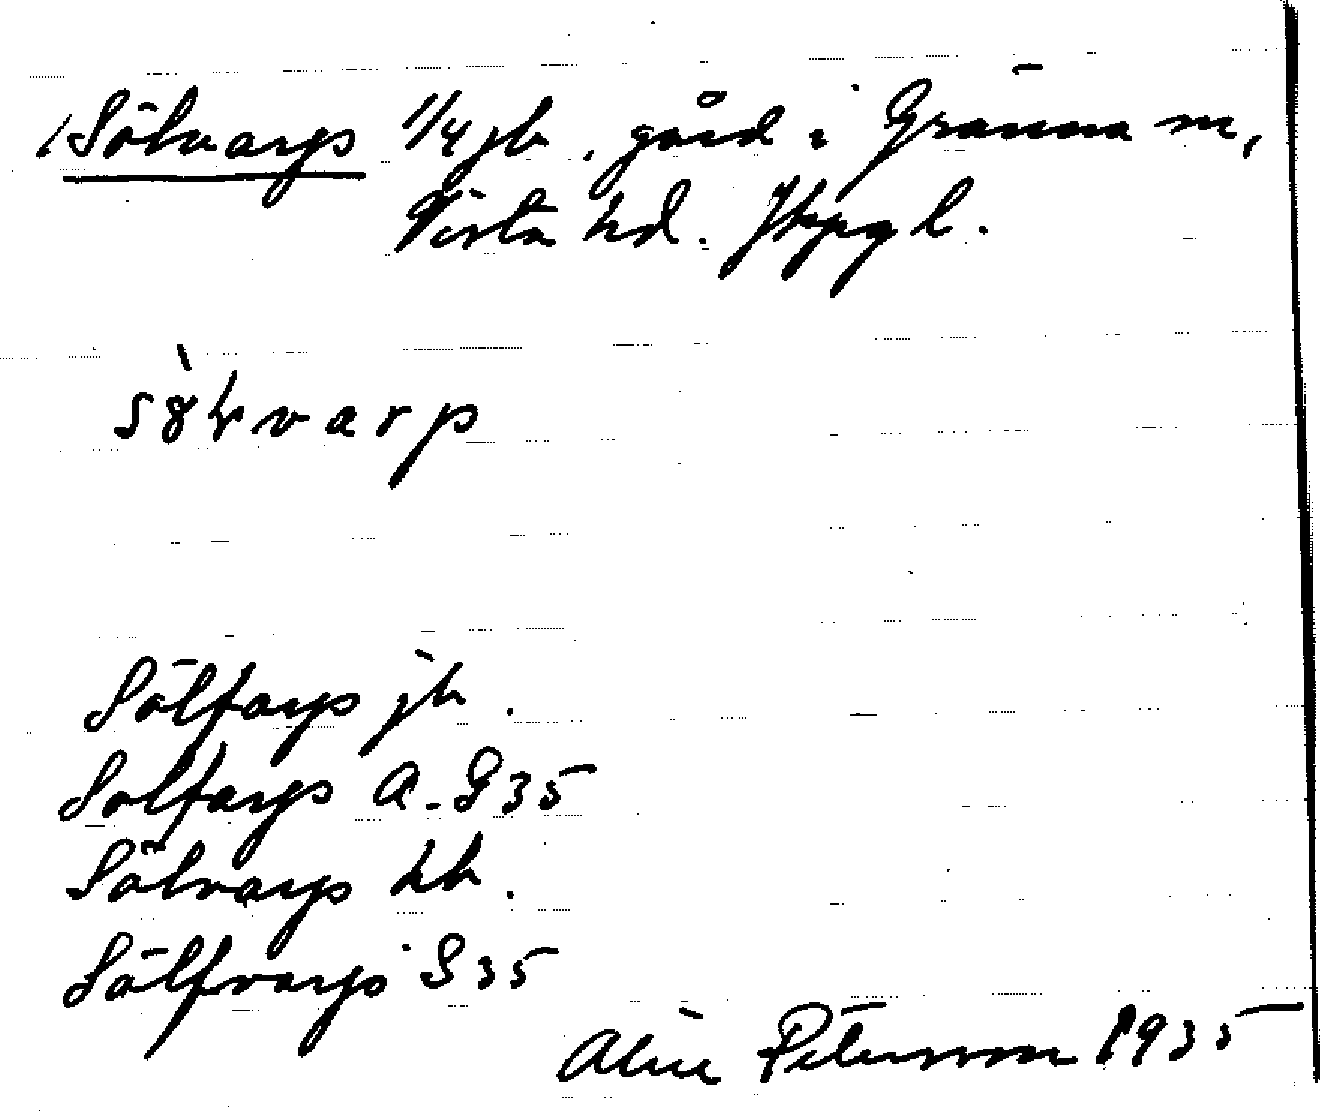 Sölvarp 1/4 jb. gård i Gränna sn,
Vista hd. Jkpg l.
sölvarp
Sölfarp jb.
Solfarp A. G 35
Sölvarp hb.
Sölfvarp G 35
Aline Petersson 1935